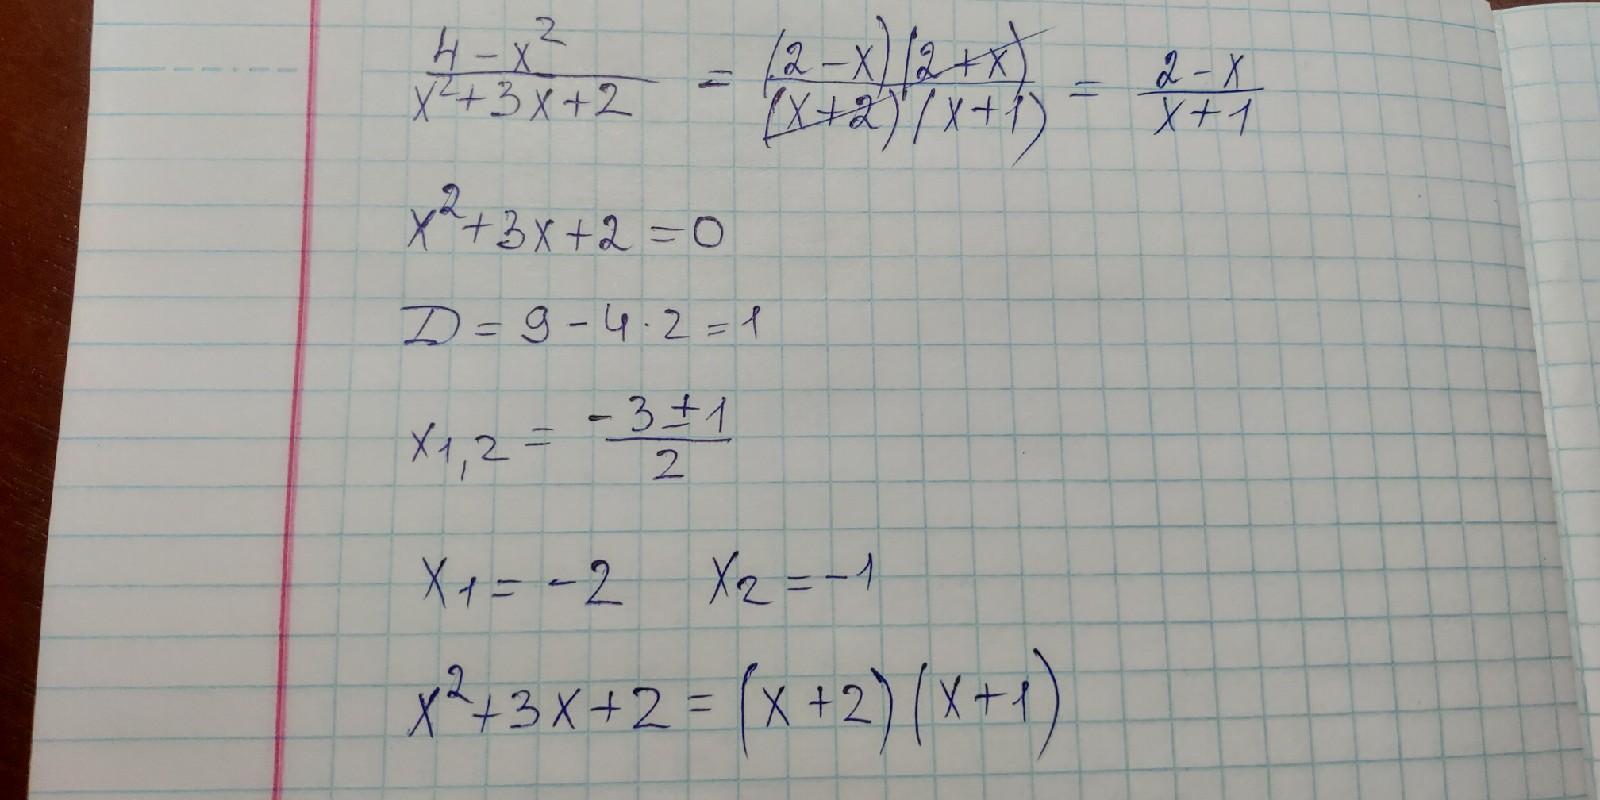 (4 - x²)/(x² + 3x + 2) = ((2 - x)(2 + x))/((x + 2)(x + 1)) = (2 - x)/(x + 1)
x² + 3x + 2 = 0
D = 9 - 4 · 2 = 1
x₁,₂ = (-3 ± 1)/2
x₁ = -2 x₂ = -1
x² + 3x + 2 = (x + 2)(x + 1)